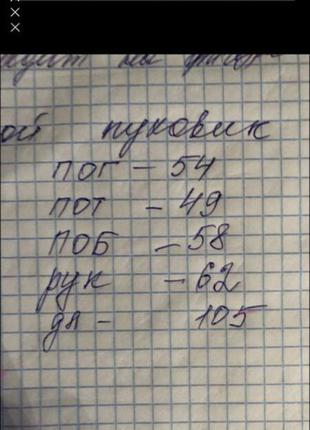 ой пуховик
ПОГ - 54
ПОТ - 49
ПОБ - 58
рук - 62
дл - 105